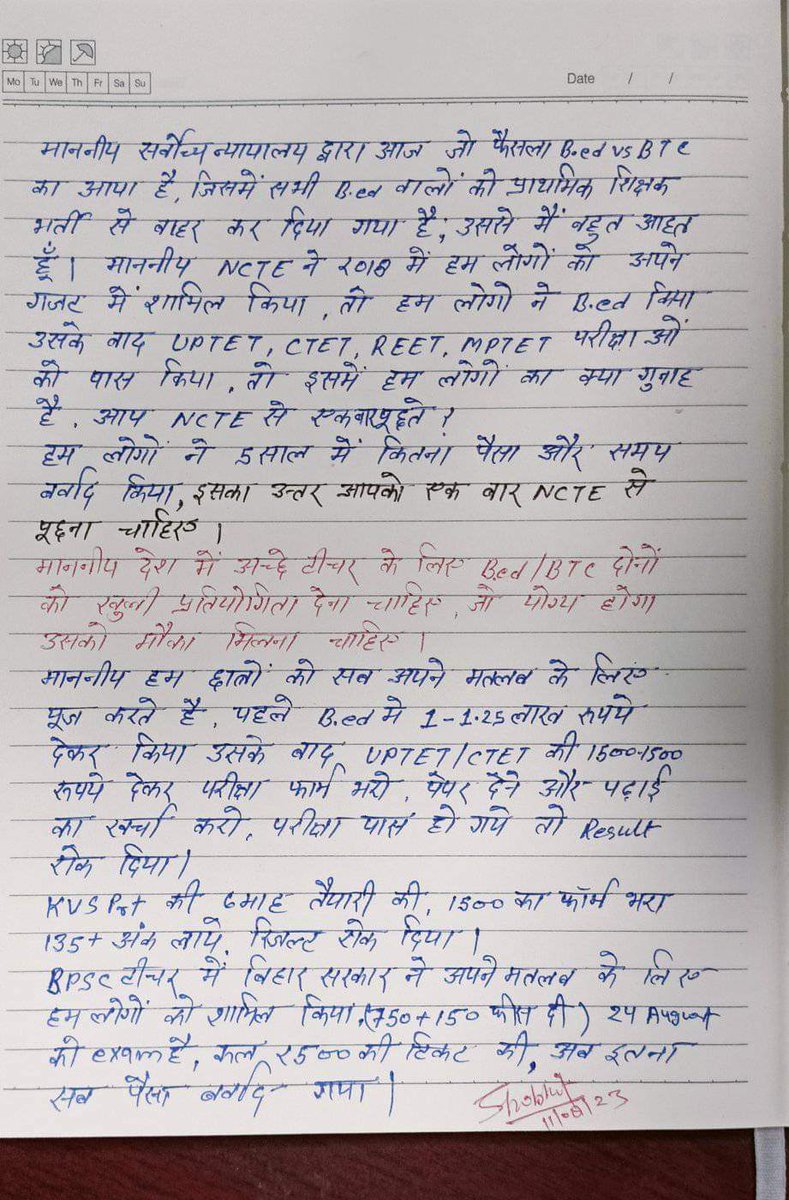 Mo Tu We Th Fr Sa Su
Date / /
माननीय सर्वोच्च न्यायालय द्वारा आज जो फैसला B.ed vs BTC
का आया है, जिसमें सभी B.ed वालों को प्राथमिक शिक्षक
भर्ती से बाहर कर दिया गया है, उससे मैं बहुत आहत
हूँ। माननीय NCTE ने 2018 में हम लोगों को अपने
गजट में शामिल किया, तो हम लोगो ने B.ed किया
उसके बाद UPTET, CTET, REET, MPTET परीक्षा ओं
को पास किया, तो इसमें हम लोगों का क्या गुनाह
है, आप NCTE से एकबार पूछते?
हम लोगों ने 5 साल में कितना पैसा और समय
बर्वाद किया, इसका उत्तर आपको एक बार NCTE से
पूछना चाहिए।
माननीय देश में अच्छे टीचर के लिए Bed/BTC दोनों
को खुली प्रतियोगिता देना चाहिए, जो योग्य होगा
उसको मौका मिलना चाहिए।
माननीय हम छात्रों को सब अपने मतलब के लिए
यूज करते है, पहले B.ed मे 1-1.25 लाख रुपये
देकर किया उसके बाद UPTET/CTET की 1500-1500
रूपये देकर परीक्षा फार्म भरो, पेपर देने और पढ़ाई
का खर्चा करो, परीक्षा पास हो गये तो Result
रोक दिया।
KVS Prt की 6माह तैयारी की, 1500 का फॉर्म भरा
135+ अंक लाये, रिजल्ट रोक दिया।
BPSC टीचर में बिहार सरकार ने अपने मतलब के लिए
हम लोगों को शामिल किया, (750+150 फीस दी) 24 August
को exam है, कल 2500 की टिकट की, अब इतना
सब पैसा बर्वाद गया।
Shobhit
11/08/23